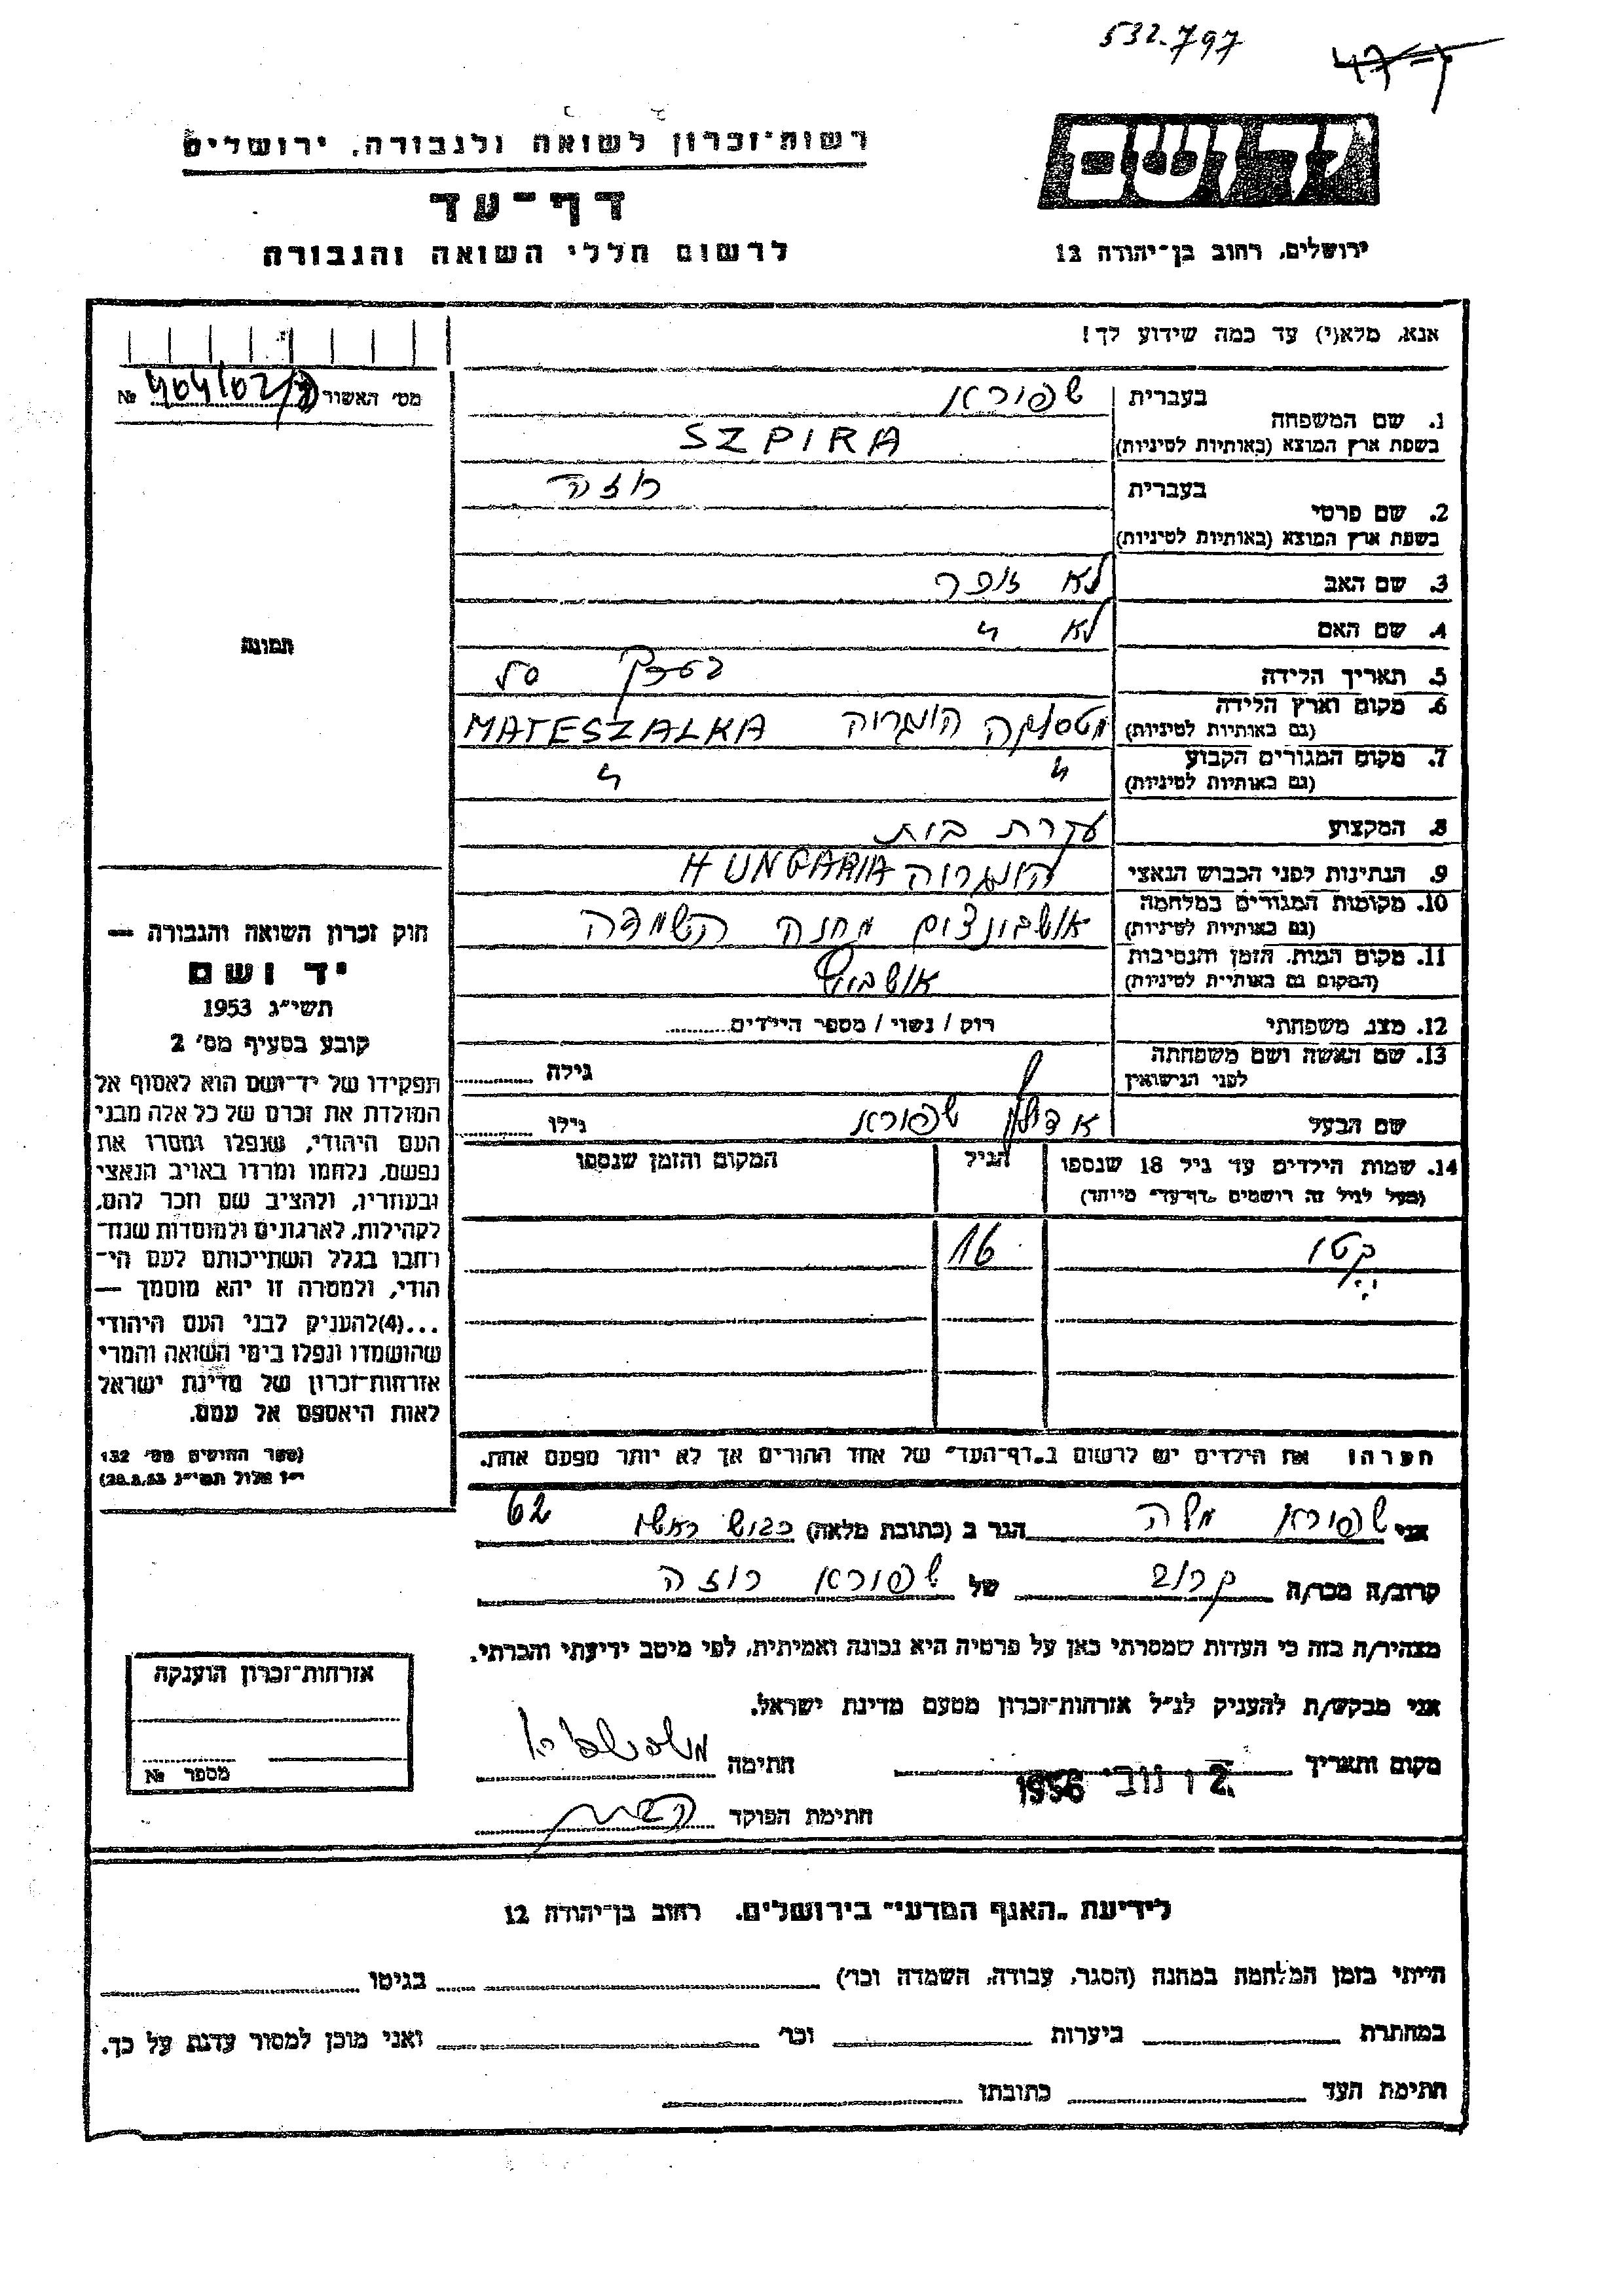 532.797
רשות־זכרון לשואה ולגבורה, ירושלים
יד ושם
דף־עד
לרשום חללי השואה והגבורה
ירושלים, רחוב בן־יהודה 12
אנא, מלא(י) עד כמה שידוע לך!
מס׳ האשור №
1. שם המשפחה
בעברית שפירא
בשפת ארץ המוצא (באותיות לטיניות) SZPIRA
2. שם פרטי
בעברית רוזה
בשפת ארץ המוצא (באותיות לטיניות)
3. שם האב לא זוכר
4. שם האם לא 〃
תמונה
5. תאריך הלידה בערך 50
6. מקום וארץ הלידה הונגריה MATESZALKA
(גם באותיות לטיניות)
7. מקום המגורים הקבוע 〃 〃
(גם באותיות לטיניות)
8. המקצוע עקרת בית
9. הנתינות לפני הכבוש הנאצי הונגריה HUNGARIA
10. מקומות המגורים במלחמה מחנה השמדה
(גם באותיות לטיניות)
11. מקום המות, הזמן והנסיבות
(המקום גם באותיות לטיניות)
12. מצב משפחתי רוק / נשוי / מספר הילדים
13. שם האשה ושם משפחתה
לפני הנישואין גילה
שם הבעל שפירא גילו
14. שמות הילדים עד גיל 18 שנספו הגיל המקום והזמן שנספו
(מעל לגיל זה רושמים „דף־עד״ מיוחד)
קטי 16
חוק זכרון השואה והגבורה —
יד ושם
תשי״ג 1953
קובע בסעיף מס׳ 2
תפקידו של יד־ושם הוא לאסוף אל
המולדת את זכרם של כל אלה מבני
העם היהודי, שנפלו ומסרו את
נפשם, נלחמו ומרדו באויב הנאצי
ובעוזריו, ולהציב שם וזכר להם,
לקהילות, לארגונים ולמוסדות שנח־
רחבו בגלל השתייכותם לעם הי־
הודי, ולמטרה זו יהא מוסמך —
...(4)להעניק לבני העם היהודי
שהושמדו ונפלו בימי השואה והמרי
אזרחות־זכרון של מדינת ישראל
לאות היאספם אל עמם.
(ספר החוקים מס׳ 132
י״ז אלול תשי״ג 28.8.53)
הערה: את הילדים יש לרשום ב„דף־העד״ של אחד ההורים אך לא יותר מפעם אחת.
אני שפירא הגר ב (כתובת מלאה) כביש ראשי 62
קרוב/ה מכר/ה קרוב של שפירא רוזה
מצהיר/ה בזה כי העדות שמסרתי כאן על פרטיה היא נכונה ואמיתית, לפי מיטב ידיעתי והכרתי.
אני מבקש/ת להעניק לנ״ל אזרחות־זכרון מטעם מדינת ישראל.
מקום ותאריך 2 נוב׳ 1956 חתימה
חתימת הפוקד
אזרחות־זכרון הוענקה
מספר №
לידיעת „האגף המדעי״ בירושלים. רחוב בן־יהודה 12
הייתי בזמן המלחמה במחנה (הסגר, עבודה, השמדה וכו׳) בגיטו
במחתרת ביערות וכו׳ ואני מוכן למסור עדות על כך.
חתימת העד כתובתו